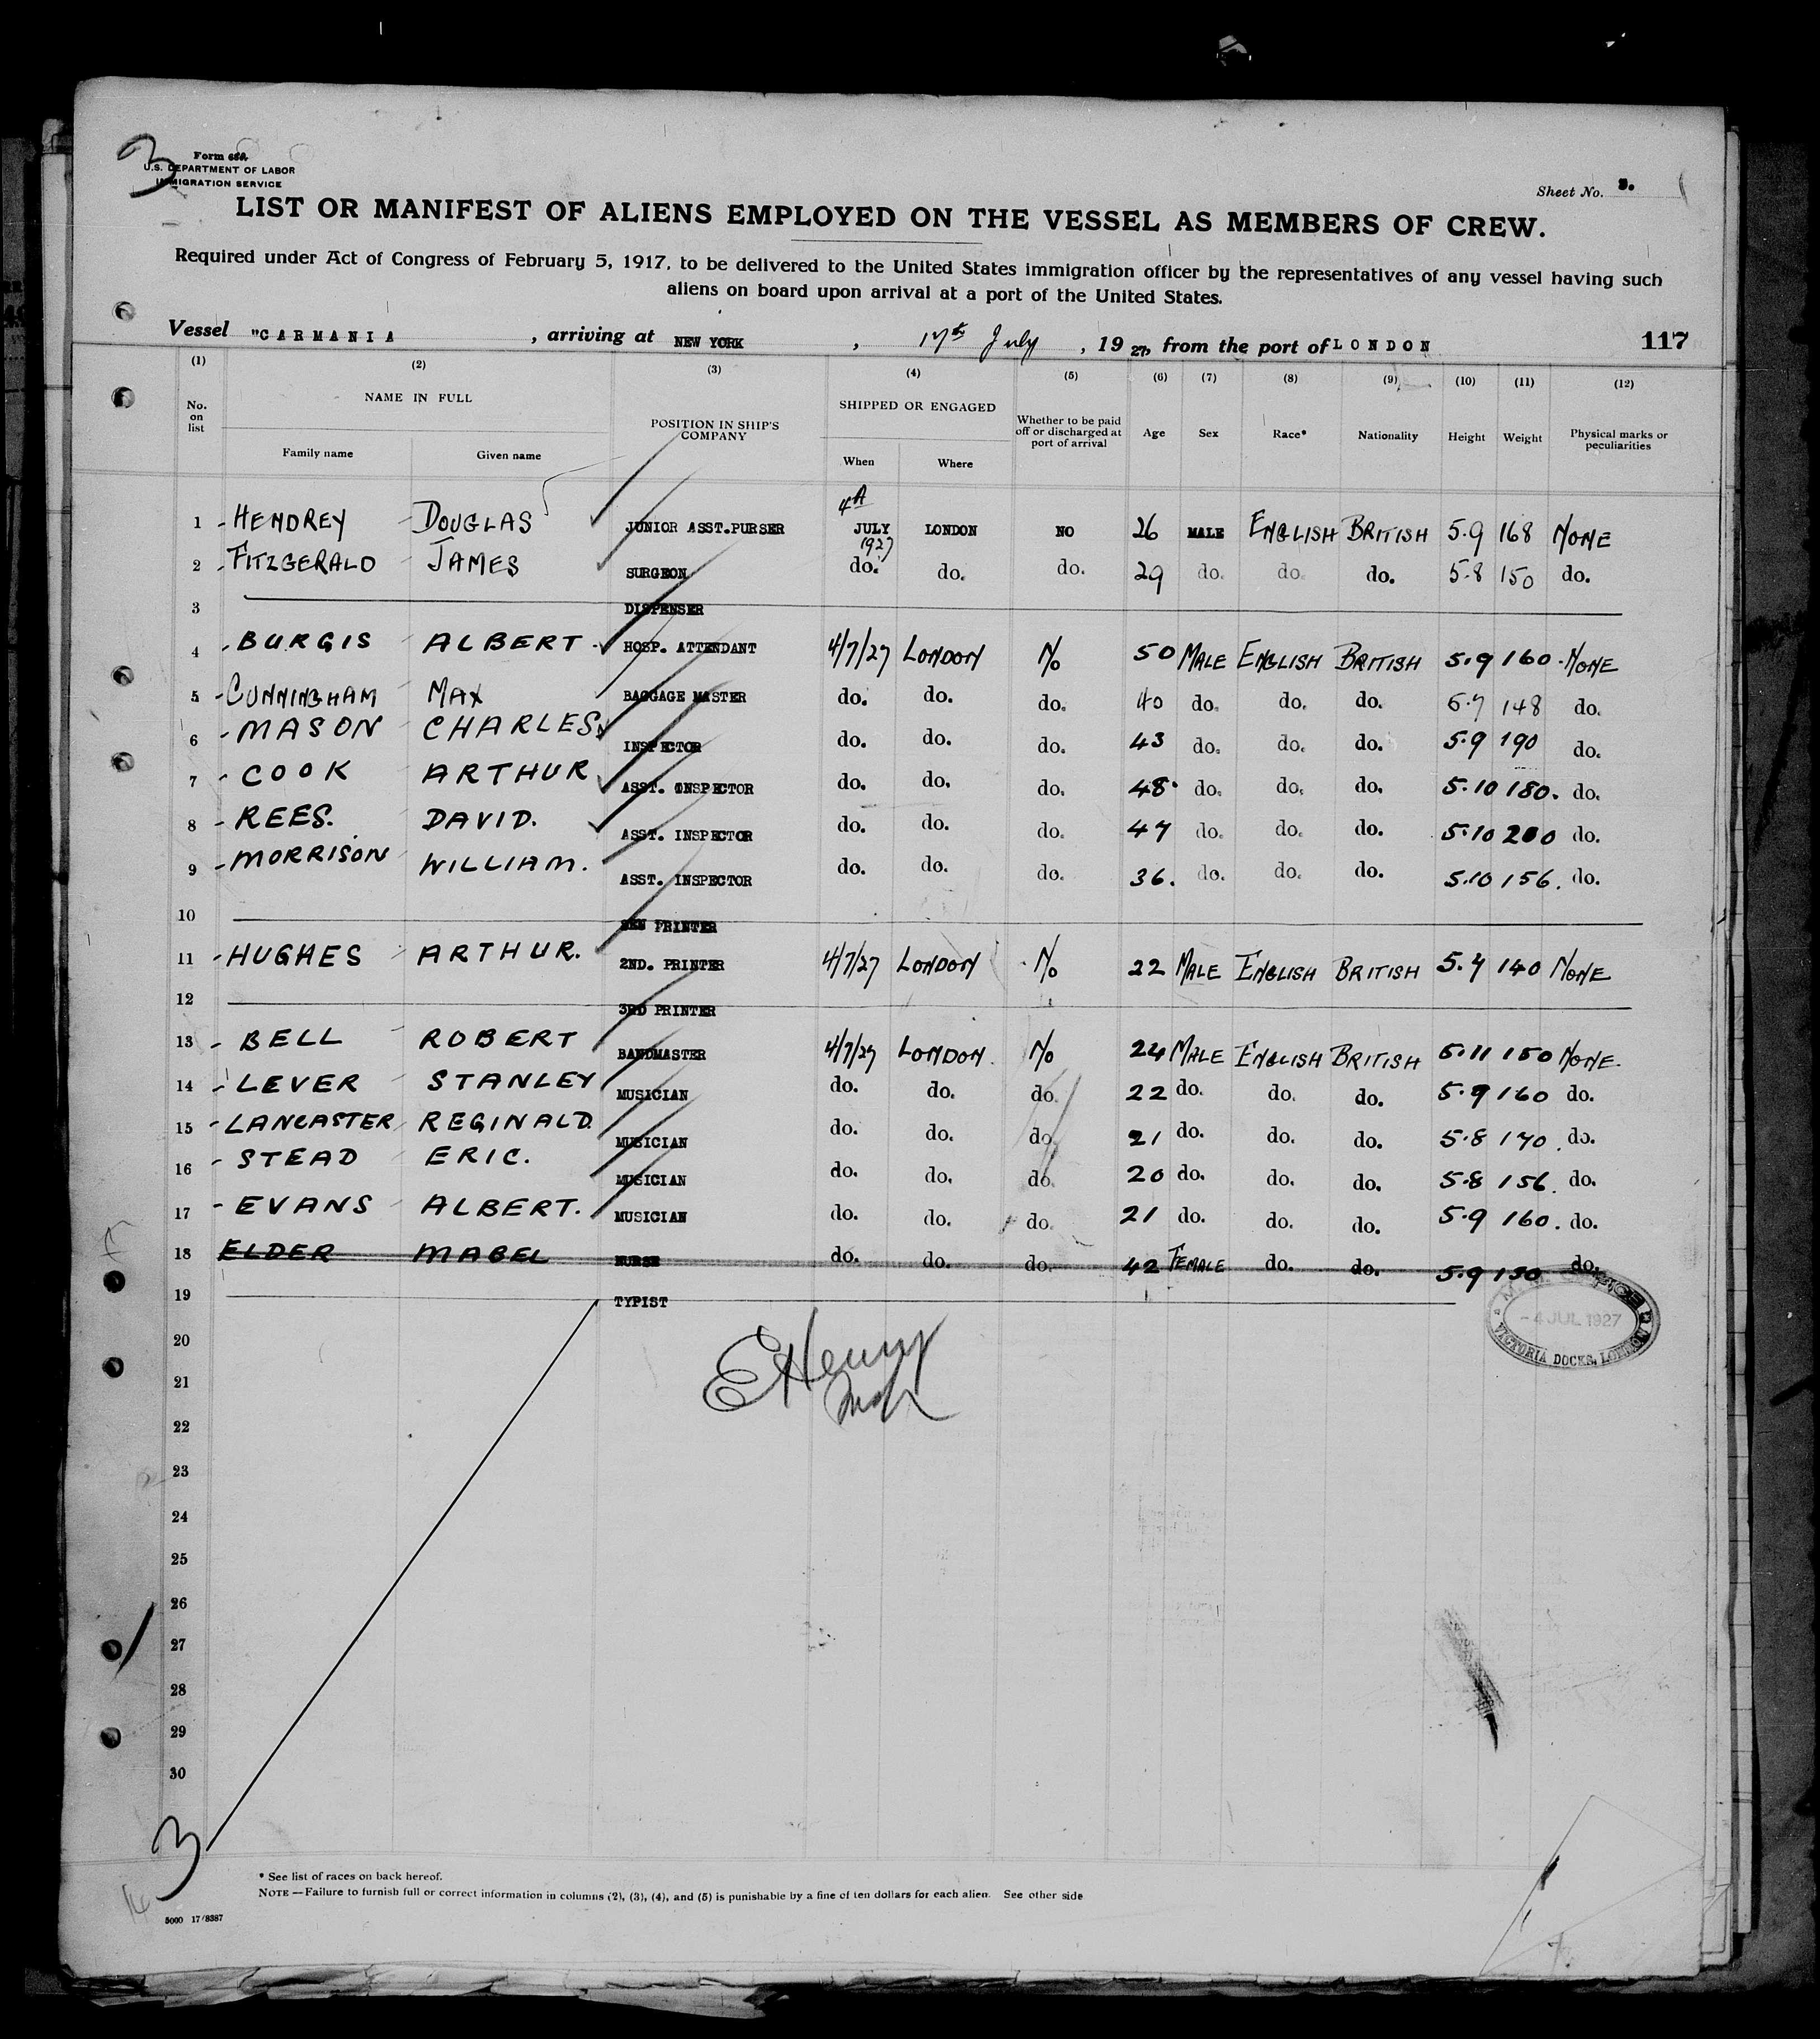 3
Form 680.
U.S. DEPARTMENT OF LABOR
IMMIGRATION SERVICE
Sheet No. 3.
LIST OR MANIFEST OF ALIENS EMPLOYED ON THE VESSEL AS MEMBERS OF CREW.
Required under Act of Congress of February 5, 1917, to be delivered to the United States immigration officer by the representatives of any vessel having such
aliens on board upon arrival at a port of the United States.
Vessel "CARMANIA , arriving at NEW YORK , 17th July , 19 27, from the port of LONDON 117
(1) (2) (3) (4) (5) (6) (7) (8) (9) (10) (11) (12)
No. on list NAME IN FULL Family name Given name POSITION IN SHIP'S COMPANY SHIPPED OR ENGAGED When Where Whether to be paid off or discharged at port of arrival Age Sex Race* Nationality Height Weight Physical marks or peculiarities
1 HENDREY DOUGLAS JUNIOR ASST.PURSER 4th JULY 1927 LONDON NO 26 MALE ENGLISH BRITISH 5.9 168 NONE
2 FITZGERALD JAMES SURGEON do. do. do. 29 do. do. do. 5.8 150 do.
3 DISPENSER
4 BURGIS ALBERT HOSP. ATTENDANT 4/7/27 LONDON No 50 MALE ENGLISH BRITISH 5.9 160 NONE
5 CUNNINGHAM MAX BAGGAGE MASTER do. do. do. 40 do. do. do. 5.7 148 do.
6 MASON CHARLES INSPECTOR do. do. do. 43 do. do. do. 5.9 190 do.
7 COOK ARTHUR ASST. INSPECTOR do. do. do. 48 do. do. do. 5.10 180. do.
8 REES. DAVID. ASST. INSPECTOR do. do. do. 47 do. do. do. 5.10 200 do.
9 MORRISON WILLIAM. ASST. INSPECTOR do. do. do. 36. do. do. do. 5.10 156. do.
10 PRINTER
11 HUGHES ARTHUR. 2ND. PRINTER 4/7/27 LONDON No 22 MALE ENGLISH BRITISH 5.7 140 NONE
12 3RD PRINTER
13 BELL ROBERT BANDMASTER 4/7/27 LONDON. No 24 MALE ENGLISH BRITISH 5.11 150 NONE.
14 LEVER STANLEY MUSICIAN do. do. do. 22 do. do. do. 5.9 160 do.
15 LANCASTER REGINALD MUSICIAN do. do. do. 21 do. do. do. 5.8 170. do.
16 STEAD ERIC. MUSICIAN do. do. do. 20 do. do. do. 5.8 156. do.
17 EVANS ALBERT. MUSICIAN do. do. do. 21 do. do. do. 5.9 160. do.
18 ELDER MABEL NURSE do. do. do. 42 FEMALE do. do. 5.9 150 do.
19 TYPIST
- 4 JUL 1927
VICTORIA DOCKS, LONDON
20
E Henry
21
22
23
24
25
26
27
28
29
30
3
* See list of races on back hereof.
NOTE —Failure to furnish full or correct information in columns (2), (3), (4), and (5) is punishable by a fine of ten dollars for each alien. See other side
5000 17/8387